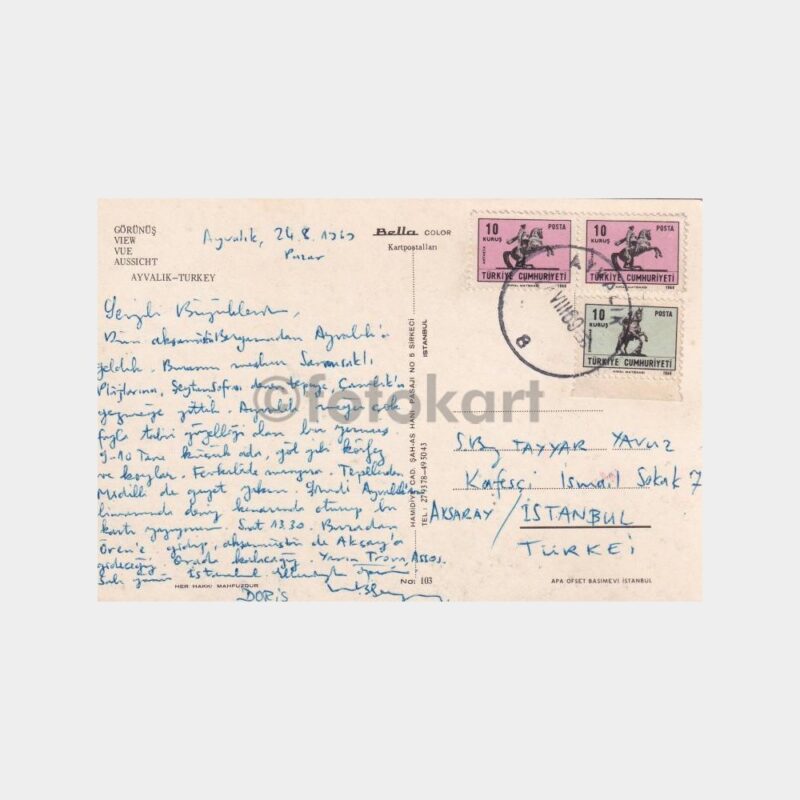 GÖRÜNÜŞ
VIEW
VUE
AUSSICHT
AYVALIK-TURKEY
Ayvalık, 24.8.1969
Pazar
Bella COLOR
Kartpostalları
10
KURUŞ
POSTA
TÜRKİYE CUMHURİYETİ
1968
10
KURUŞ
POSTA
TÜRKİYE CUMHURİYETİ
1968
10
KURUŞ
POSTA
TÜRKİYE CUMHURİYETİ
1968
AYVALIK
VIII69
8
Sevgili Büyüklerim,
Dün akşamüstü Bergamadan Ayvalık'a
geldik. Buranın meşhur Sarmısaklı
Plajlarına, Şeytan Sofrası tepeye, Çamlık'a
gittik. Ayvalık çok
fazla tabii güzelliği olan bir
9-10 Tane küçük ada, göl gibi körfez
ve koylar. Tepelerden
Midilli de gayet yakın. Şimdi Ayvalık'ın
limanında deniz kenarında oturup bu
kartı yazıyorum. Saat 13.30. Buradan
Ören'e gidip, akşamüstü de Akçay'a
gideceğiz. Orada kalacağız. Yarın Trova, Assos.
Salı günü İstanbul
DORİS
©fotokart
HAMİDİYE CAD. ŞAH-AS HANI PASAJI NO 5 SİRKECİ İSTANBUL
TEL: 279378-493043
S. By TAYYAR YAVUZ
Kafesçi İsmail Sokak 7
AKSARAY / İSTANBUL
TÜRKEİ
HER HAKKI MAHFUZDUR
No: 103
APA OFSET BASIMEVİ İSTANBUL